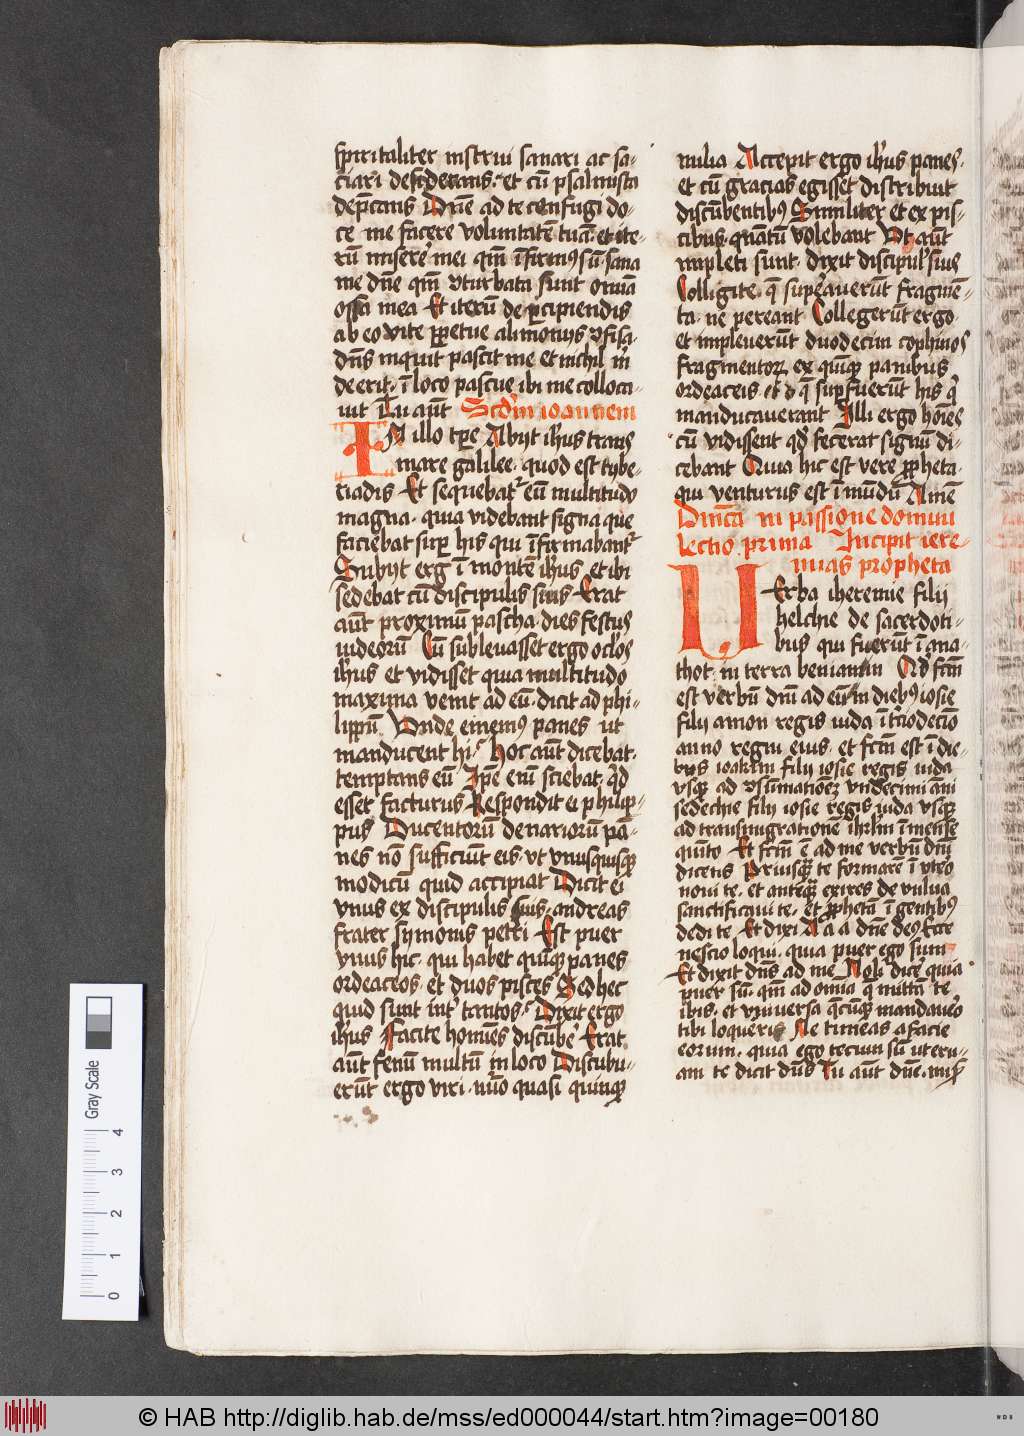 spiritaliter instrui sanari ac sa-
ciari desiderans. et cū psalmista
dep̄cans Dn̄e ad te confugi do-
ce me facere voluntatē tuā. et ite-
rū miserē mei qm̄ īfirmꝰ sū sana
me dn̄e qm̄ ꝯturbata sunt om̄ia
ossa mea Et iterū de p̄cipiendis
ab eo vite ꝑpetue alimoniis ꝯfisꝰ
dn̄s inquit pascit me et nichil m̄
deerit. ī loco pascue ibi me colloca-
uit Tu aūt Scd̄m ioannem
IN illo tꝑe Abijt ih̄us trans
mare galilee. quod est tybe-
riadis Et sequebatᷣ eū multitudo
magna. quia videbant signa que
faciebat suꝑ his qui īfirmabantᷣ
Subijt erg ī montē ih̄us. et ibi
sedebat cū discipulis suis Erat
aūt proximū pascha. dies festus
iudeorū Cū subleuasset ergo oclōs
ih̄us et vidisset quia multitudo
maxima venit ad eū. dicit ad phi-
lippū Vnde ememꝰ panes ut
manducent hi. Hoc aūt dicebat.
temptans eū Ip̄e eni̅ sciebat qd̄
esset facturus Respondit ei philip-
pus Ducentorū denariorū pā-
nes nō sufficiūt eis. vt vnusquisqꝫ
modicū quid accipiat Dicit ei
vnus ex discipulis suis. andreas
frater symonis petri Est puer
vnus hic. qui habet quīqꝫ panes
ordeaceos. et duos pisces Sed hec
quid sunt int̄ tantos. Dixit ergo
ih̄us Facite homi̅es discūbē Erat
aūt fenū multū in loco Discubu-
erūt ergo viri. nūo quasi quinqꝫ
milia Accepit ergo ih̄us panes.
et cū gracias egisset distribuit
discūbentibꝰ Similiter et ex pis-
cibus. quantū volebant Vt aūt
impleti sunt. dixit discipul̄ suis
Colligite. q̄ suꝑauerūt fragmē-
ta. ne pereant Collegerūt ergo
et impleuerūt duodecim cophinos
fragmentoꝝ ex quīqꝫ panibus
ordeaceis q̄ suꝑfuerūt his q̄
manducauerant Illi ergo hoīes
cū vidissent qd̄ fecerat signū di-
cebant Quia hic est vere ꝓpheta.
qui venturus est ī mūdū Amē
Dnīca in passione domini
lectio prima Incipit iere-
mias propheta
VErba iheremie filij
helchie de sacerdoti-
bus qui fuerūt ī ana-
thot. in terra beniamin Ad fcm̄
est verbū dn̄i ad eū in diebꝰ iosie
filij amon regis iuda ī t̄ciodecīo
anno regni eius. et fcm̄ est ī die-
bus ioakim filij iosie regis iuda
vsqꝫ ad ꝯsūmatiōeꝫ vndecimi āni
sedechie filij iosie regis iuda vsqꝫ
ad transmigrationē ihrlm̄ ī mense
quīto Et fcm̄ ē ad me verbū dn̄i
dicens Priusqꝫ te formarē ī vtēo
noui te. et anteqꝫ exires de vulua
sanctificaui te. et ꝓphetā ī gentibꝰ
dedi te Et dixi A a a dn̄e deꝰ Ecce
nescio loqui. quia puer ego sum
Et dixit dn̄s ad me Noli dicē quia
puer sū. qm̄ ad om̄ia q̄ mittā te
ibis. et vniuersa q̄cūqꝫ mandauēo
tibi loqueris Ne timeas a facie
eorum. quia ego tecum sū ut eru-
am te dicit dn̄s Tu aūt dn̄e. mis̄
Gray Scale
0 1 2 3 4
© HAB http://diglib.hab.de/mss/ed000044/start.htm?image=00180